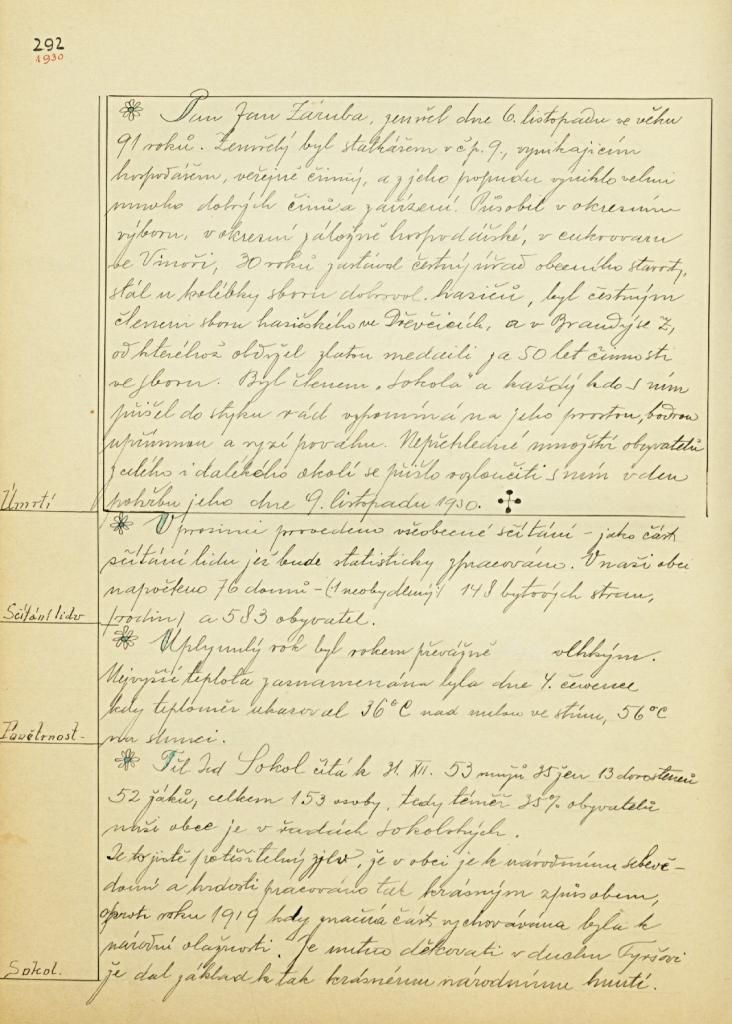 292
1930
Pan Jan Záruba, zemřel dne 6. listopadu ve věku
91 roků. Zemřelý byl statkářem v čp. 9., vynikajícím
hospodářem, veřejně činný, a z jeho popudu vzniklo velmi
mnoho dobrých činů a zařízení. Působil v okresním
výboru, v okresní záložně hospodářské, v cukrovaru
ve Vinoři, 30 roků zastával čestný úřad obecního starosty,
stál u kolébky sboru dobrovol. hasičů, byl čestným
členem sboru hasičského ve Dřevčicích, a v Brandýse Z,
od kteréhož obdržel zlatou medaili za 50 let činnosti
ve sboru. Byl členem „Sokola" a každý kdo s ním
přišel do styku rád vzpomíná na jeho prostou, bodrou
upřímnou a ryzí povahu. Nepřehledné množství obyvatelů
z celého i dalekého okolí se přišlo rozloučiti s ním v den
pohřbu jeho dne 9. listopadu 1930.
Úmrtí
V prosinci provedeno všeobecné sčítání – jako část
sčítání lidu jež bude statisticky zpracováno. V naší obci
napočteno 76 domů – (1 neobydlený) 148 bytových stran,
(rodin) a 583 obyvatel.
Sčítání lidu
Uplynulý rok byl rokem převážně vlhkým.
Nejvyšší teplota zaznamenána byla dne 4. července
kdy teploměr ukazoval 36°C nad nulou ve stínu, 56°C
na slunci.
Povětrnost.
Těl. Jed. Sokol čítá k 31. XII. 53 mužů 35 žen 13 dorostenců
52 žáků, celkem 153 osoby, tedy téměř 35% obyvatelů
naší obce je v řadách sokolských.
Je to jistě potěšitelný zjev, že v obci je k národnímu sebevě-
domí a hrdosti pracováno tak krásným způsobem,
oproti roku 1919 kdy značná část vychovávána byla k
národní vlažnosti. Je nutno děkovati v duchu Tyršovi
že dal základ k tak krásnému národnímu hnutí.
Sokol.